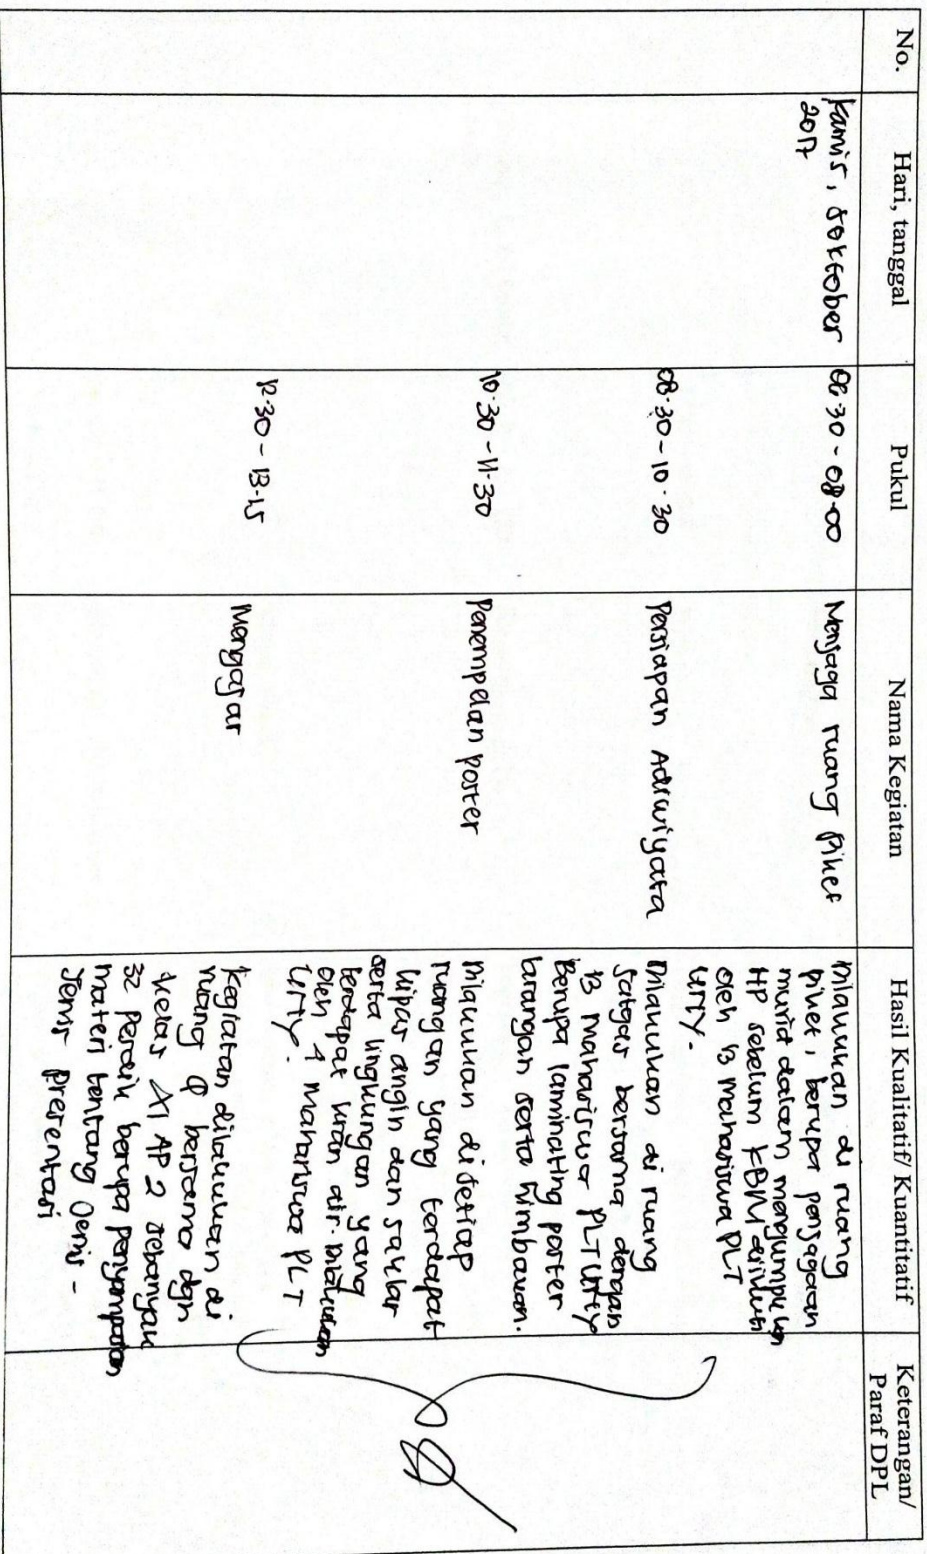 No.
Hari, tanggal
Pukul
Nama Kegiatan
Hasil Kualitatif/ Kuantitatif
Keterangan/
Paraf DPL
Kamis, 5 Oktober
2017
06.30 - 08.00
Menjaga ruang piket
Dilakukan di ruang
piket, berupa penjagaan
murid dalam mengumpulkan
HP sebelum KBM diikuti
oleh 13 mahasiswa PLT
UTY.
08.30 - 10.30
Persiapan Adiwiyata
Dilakukan di ruang
Satgas bersama dengan
13 mahasiswa PLT UTY
Berupa laminating poster
larangan serta himbauan.
10.30 - 11.30
Penempelan poster
Dilakukan disetiap
ruangan yang terdapat
kipas angin dan saklar
serta lingkungan yang
terdapat kran air. Dilakukan
oleh 4 mahasiswa PLT
UTY.
12.30 - 13.15
Mengajar
Kegiatan dilakukan di
ruang bersama dgn
kelas XI AP 2 sebanyak
32 berupa penyampaian
materi tentang Jenis -
Jenis presentasi